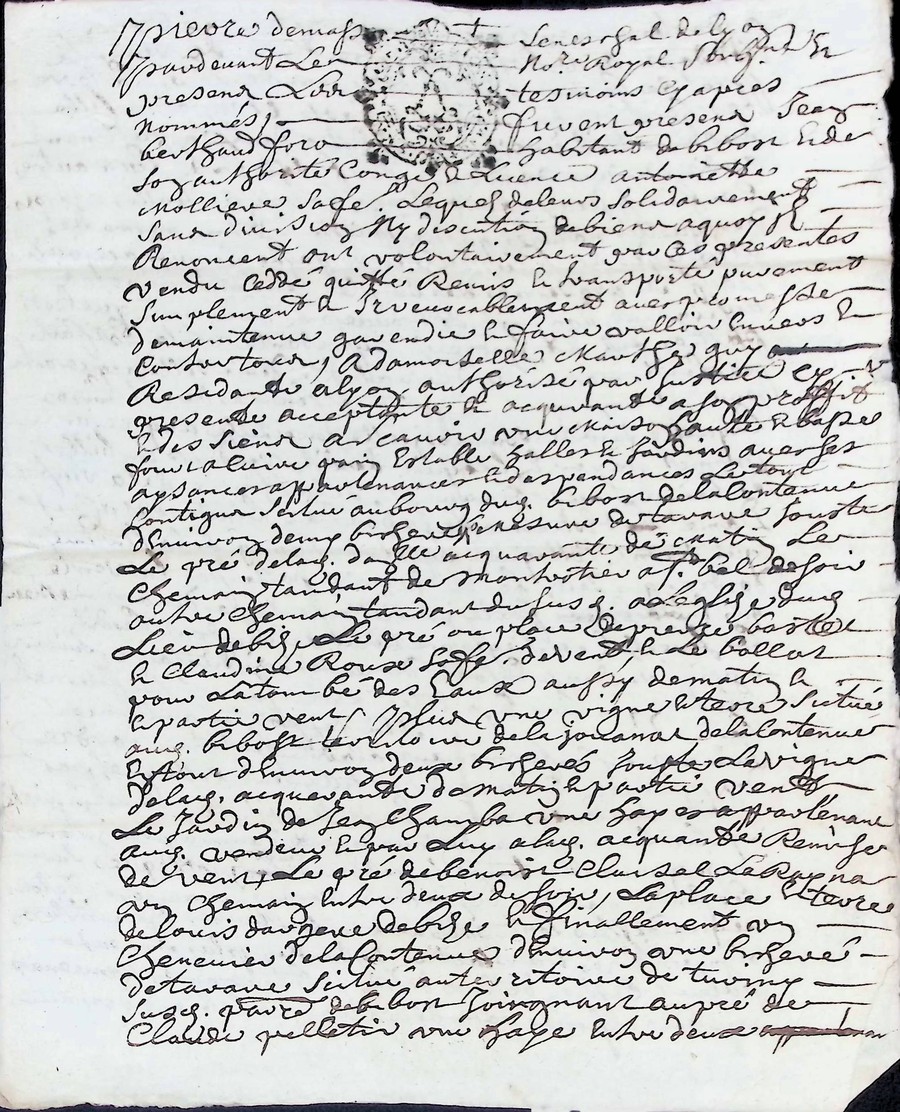 pierre demass Seneschal de lyon
pardevant Les No.re Royal Soubz.né &
presens Les tesmoins cy apres
nommés, furent presens Jean
berthaud foro habitant de bibost & de
son authorité Congé & Licence antoinette
Molliere Sa fe. Lequels de leurs Solidairement
Sans division Ny discution de biens a quoy Ils
Renoncent ont volontairement par ces presentes
vendu ceddé quitté Remis & transporté purement
Simplement & Irrevocablement avec promesse
de maintenue garendie & faire valloir Envers &
Contre tous, A damoiselle Marthe guy
Residante a lyon authorisé par Justice cy
presente acceptante & acquerante a son proffit
& des Siens a scavoir une Maison haulte & basse
four a cuire pain Estable Salles & Jardins avec ses
aysances appartenances & despendances Le tout
Contigus Scitué au bourg dud. bibost de la Contenue
d'Environ demy bicheré Mesure de tarare Jouste
Le pré de lad. d.lle acquerante de matin Le
Chemain tandant de Montrotier a S.t bel de Soir
autre Chemain tandant du susd. a L'eglise dud.
Lieu de bize Le pré ou place de pierre
& Claudine Roux Sa fe. de vent & Le
pour La tombé des Eaux aussy de matin &
& partie vent, plus une vigne & terre Scitué
aud. bibost territoire de la Jouanas de la Contenue
En tout d'Environ deux bicherés Jouste La vigne
de lad. acquerante de matin & partie vent
Le Jardin de Jean Chamba une haye appartenant
aud. vendeur & par Luy a lad. acquante Remise
de vent, Le pré de benoist Clusel
un Chemain Entre deux de Soir, La place & terre
de Louis dargere de bize & finallement un
Chenevier de la Contenue d'Environ une bicheré
de tarare Scitué au territoire de
Susd. parre de bibost Joingnant au pré de
Claude pelletier une haye Entre deux